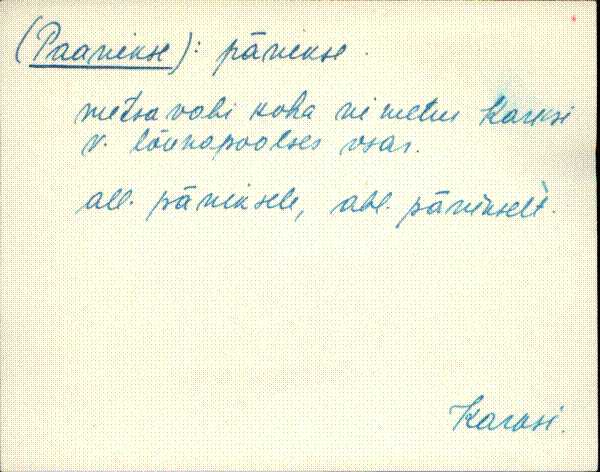 (Paanikse): pänikse.
metsavahi koha nimetus Karksi
v. lõunapoolses osas.
all. päniksele, abl. pänikselt.
Karksi.